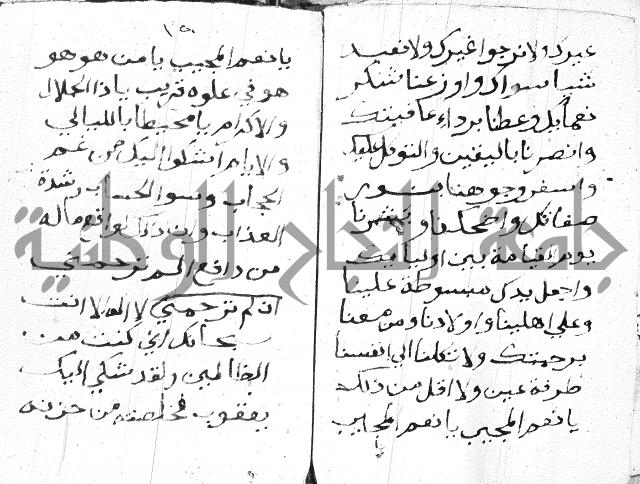 غيرك ولا نرجوا غيرك ولا نعبد
شيا سواك واوزعنا شكر
نعمايك وغطنا برداء عافيتك
وانصرنا باليقين والتوكل عليك
واسفر وجوهنا بنور
صفاتك واضحكنا وبشرنا
يوم القيامة بين اوليايك
واجعل يدك مبسوطة علينا
وعلي اهلينا واولادنا ومن معنا
برحمتك ولا تكلنا الي انفسنا
طرفة عين ولا اقل من ذلك
يا نعم المجيب يا نعم المجيب
١٥
يا نعم المجيب يا من هو هو هو
هو في علوه قريب يا ذا الجلال
والاكرام يا محيطا بالليالي
والايام اشكوا اليك من غم
الحجاب وسوء الحساب وشدة
العذاب وان ذلك لواقع ماله
من دافع ان لم ترحمني
ان لم ترحمني لا اله الا انت
سبحانك اني كنت من
الظالمين ولقد شكي اليك
يعقوب فخلصته من حزنه
جامعة النجاح الوطنية